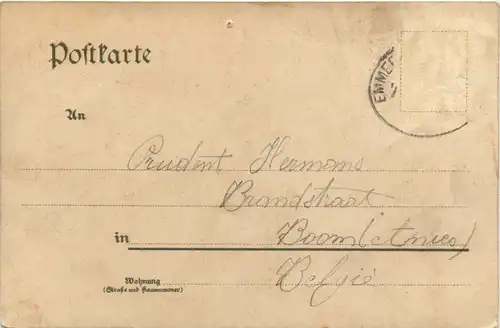 Postkarte
EMMER
An
Prudent Hermans
Brandstraat
in Boom
België
Wohnung
(Straße und Hausnummer)